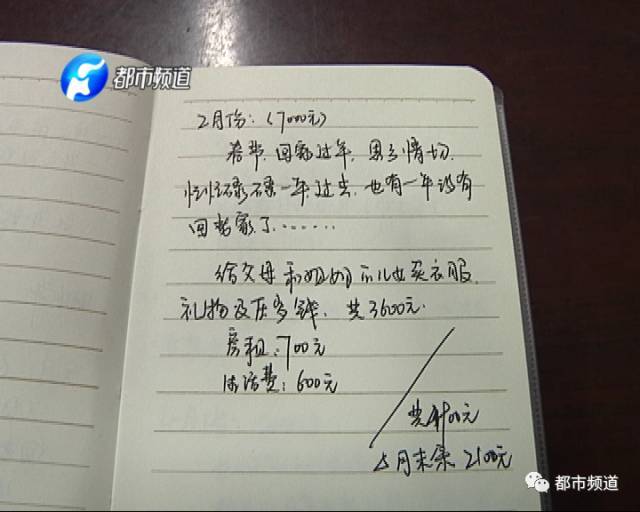 都市频道
2月份：（7000元）
春节，回家过年，思乡情切，
忙忙碌碌一年过去，也有一年没有
回老家了……
给父母和姐姐 买衣服，
礼物及压岁钱，共3600元.
房租：700元
生活费：600元
共4900元
月末余 2100元
都市频道